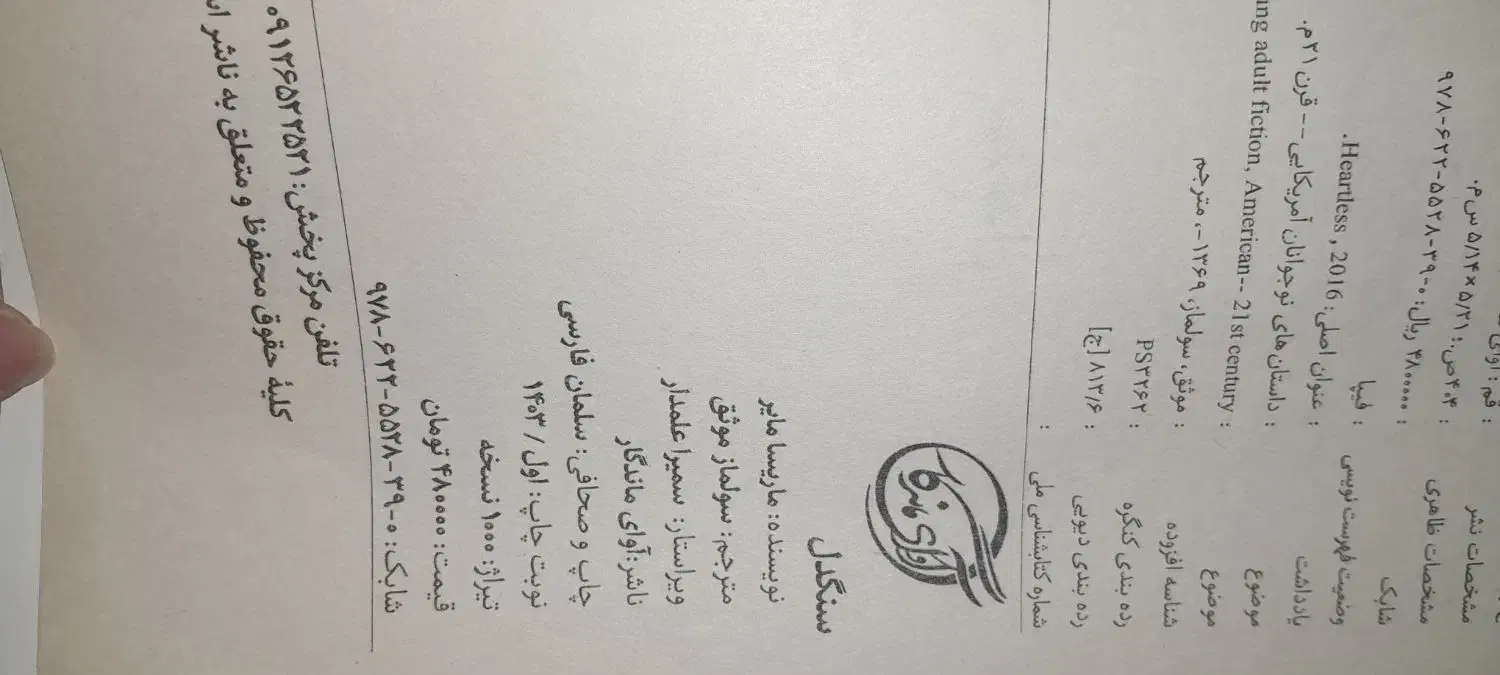 مشخصات نشر : قم: آوای
مشخصات ظاهری : ۴۰۴ص.؛ ۵/۱۴×۵/۲۱ س‌م.
شابک : ۴۸۰۰۰۰۰ ریال: ۹۷۸-۶۲۲-۵۵۲۸-۳۹-۰
وضعیت فهرست نویسی : فیپا
یادداشت : عنوان اصلی: Heartless , 2016.
موضوع : داستان‌های نوجوانان آمریکایی -- قرن ۲۱م.
موضوع : ung adult fiction, American-- 21st century
شناسه افزوده : موثق، سولماز، ۱۳۶۹-، مترجم
رده بندی کنگره : PS۳۲۶۲
رده بندی دیویی : ۸۱۳/۶[ج]
شماره کتابشناسی ملی :
آوای ماندگار
سنگدل
نویسنده: ماریسا مایر
مترجم: سولماز موثق
ویراستار: سمیرا علمدار
ناشر: آوای ماندگار
چاپ و صحافی: سلمان فارسی
نوبت چاپ: اول / ۱۴۰۳
تیراژ: ۱۰۰۰ نسخه
قیمت: ۴۸۰۰۰۰ تومان
شابک: ۹۷۸-۶۲۲-۵۵۲۸-۳۹-۰
تلفن مرکز پخش: ۰۹۱۲۶۵۲۲۵۲۱
کلیهٔ حقوق محفوظ و متعلق به ناشر